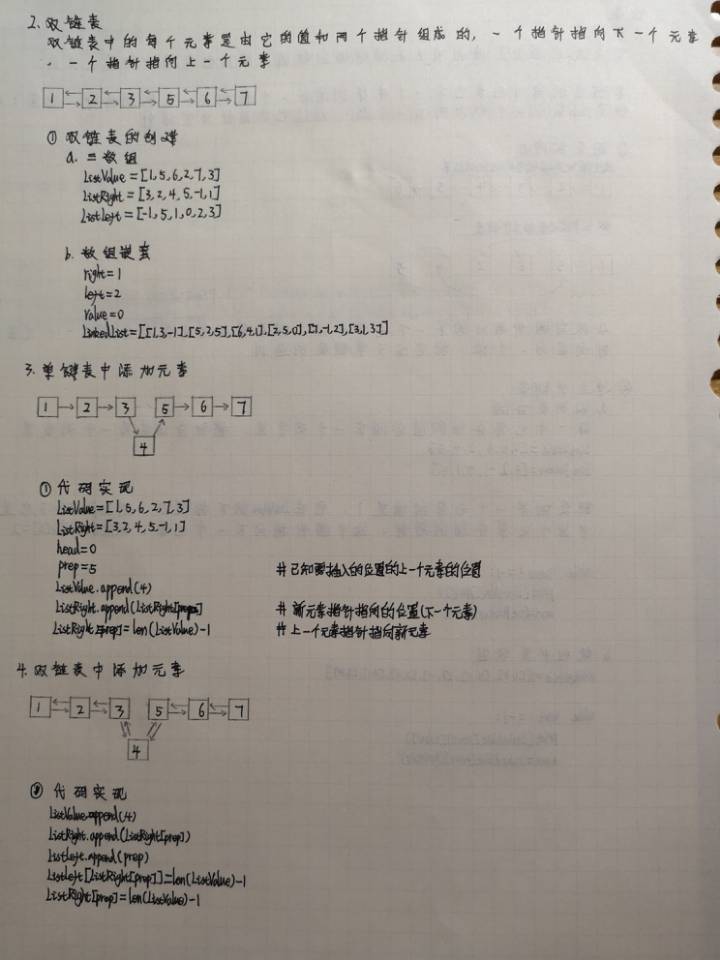 2. 双链表
双链表中的每个元素是由它的值和两个指针组成的, 一个指针指向下一个元素
, 一个指针指向上一个元素
1 2 3 5 6 7
① 双链表的创建
a. 三数组
ListValue = [1,5,6,2,7,3]
ListRight = [3,2,4,5,-1,1]
ListLeft = [-1,5,1,0,2,3]
b. 数组嵌套
right = 1
left = 2
value = 0
LinkedList = [[1,3,-1],[5,2,5],[6,4,1],[2,5,0],[7,-1,2],[3,1,3]]
3. 单链表中添加元素
1 2 3 5 6 7
4
① 代码实现
ListValue = [1,5,6,2,7,3]
ListRight = [3,2,4,5,-1,1]
head = 0
prep = 5 # 已知要插入的位置的上一个元素的位置
ListValue.append(4)
ListRight.append(ListRight[prep]) # 新元素指针指向的位置(下一个元素)
ListRight[prep] = len(ListValue)-1 # 上一个元素指针指向新元素
4. 双链表中添加元素
1 2 3 5 6 7
4
① 代码实现
ListValue.append(4)
ListRight.append(ListRight[prep])
ListLeft.append(prep)
ListLeft[ListRight[prep]] = len(ListValue)-1
ListRight[prep] = len(ListValue)-1